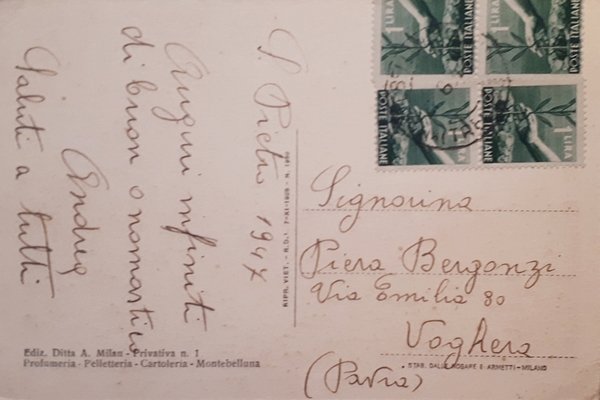 S. Pietro 1947
Auguri infiniti
di buon onomastico
Andrea
Saluti a tutti
Ediz. Ditta A. Milan - Privativa n. 1
Profumeria - Pelletteria - Cartoleria - Montebelluna
RIPR. VIET. - R.D.I. 7-XI-1925 - N.
1 LIRA
POSTE ITALIANE
1 LIRA
POSTE ITALIANE
POSTE ITALIANE
POSTE ITALIANE
1 LIRA
Signorina
Piera Bergonzi
Via Emilia 80
Voghera
(Pavia)
STAB. DALLE NOGARE E ARMETTI - MILANO